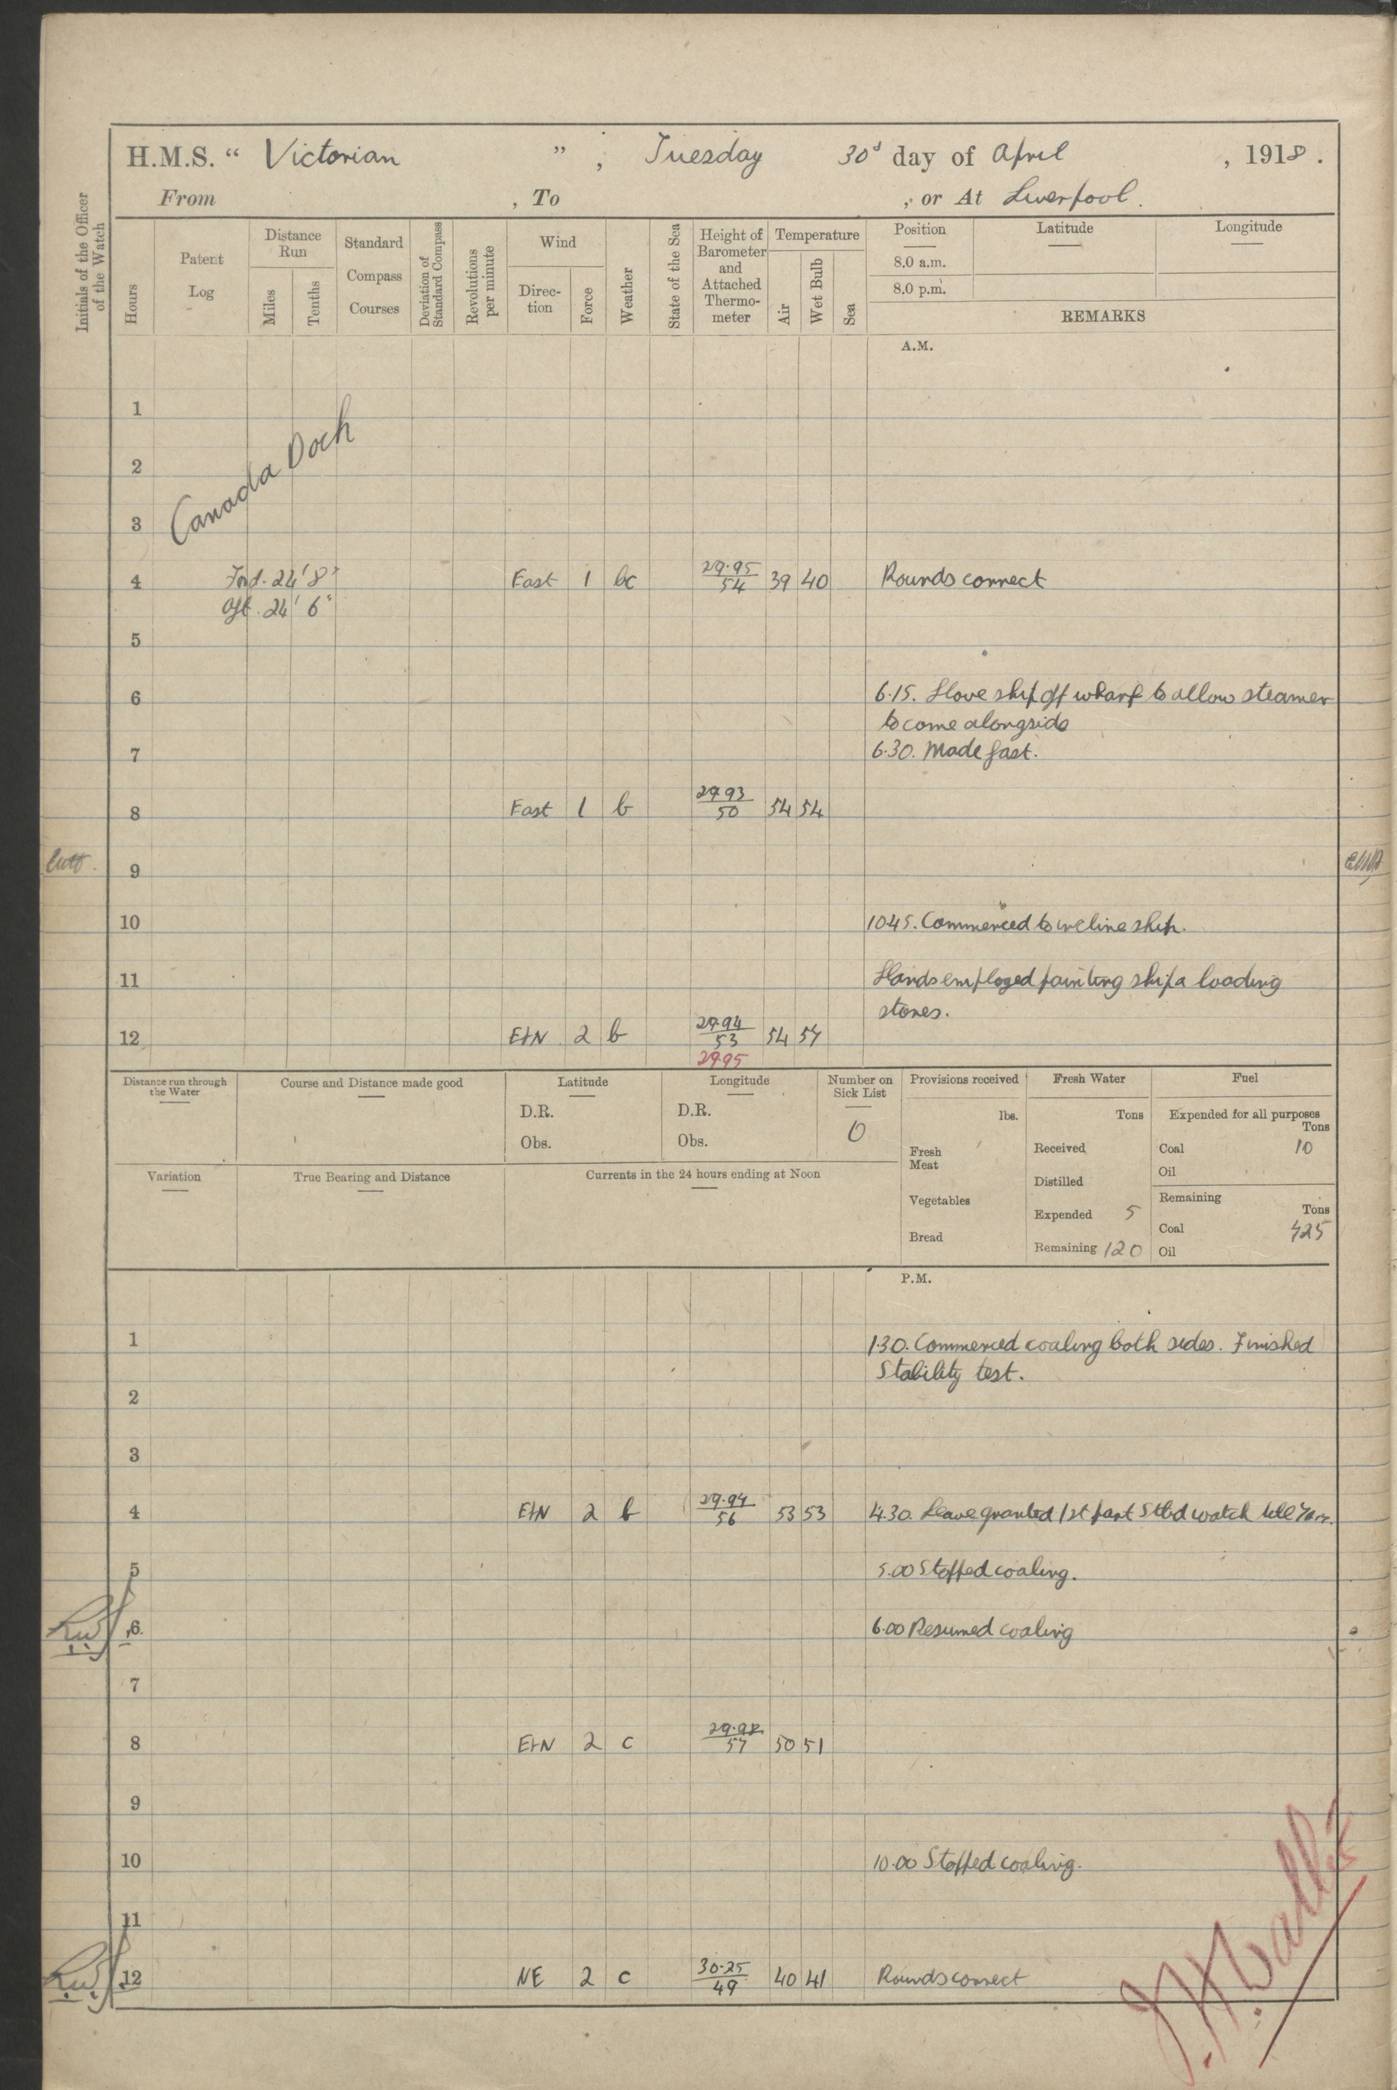 H.M.S. “ Victorian ” , Tuesday 30d day of April , 1918 .
From , To , or At Liverpool.
Initials of the Officer of the Watch
Hours
Patent Log
Distance Run
Miles
Tenths
Standard Compass Courses
Deviation of Standard Compass
Revolutions per minute
Wind
Direc-tion
Force
Weather
State of the Sea
Height of Barometer and Attached Thermo-meter
Temperature
Air
Wet Bulb
Sea
Position
Latitude
Longitude
8.0 a.m.
8.0 p.m.
REMARKS
A.M.
1
Canada Dock
2
3
4 Ford. 24' 8" East 1 bc 29.95 54 39 40 Rounds correct
Aft. 24' 6"
5
6 6.15. Hove ship off wharf to allow steamer
to come alongside
7 6.30. Made fast.
8 East 1 b 29.93 50 54 54
9
10 10.45. Commenced to incline ship.
11 Hands employed painting ship & loading
stores.
12 E+N 2 b 29.94 53 54 54
29.95
Distance run through the Water
Course and Distance made good
Latitude
D.R.
Obs.
Longitude
D.R.
Obs.
Number on Sick List
0
Provisions received
lbs.
Fresh Meat
Vegetables
Bread
Fresh Water
Tons
Received
Distilled
Expended 5
Remaining 120
Fuel
Expended for all purposes
Tons
Coal 10
Oil
Remaining
Tons
Coal 425
Oil
Variation
True Bearing and Distance
Currents in the 24 hours ending at Noon
P.M.
1 1.30. Commenced coaling both sides. Finished
Stability test.
2
3
4 E+N 2 b 29.94 56 53 53 4.30. Leave granted 1st part Stbd watch till
5 5.00 Stopped coaling.
6 6.00 Resumed coaling
7
8 E+N 2 c 29.98 57 50 51
9
10 10.00 Stopped coaling.
11
12 NE 2 c 30.25 49 40 41 Rounds correct